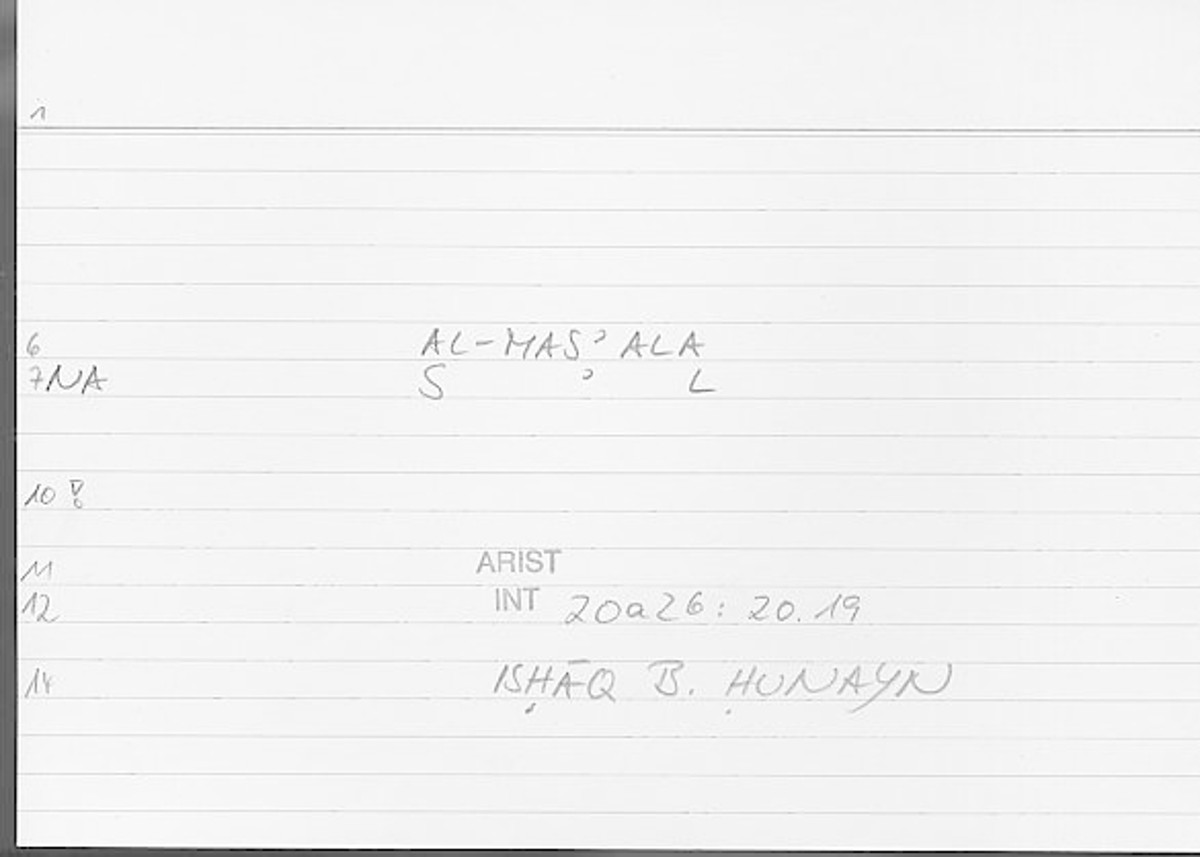 1
6 AL-MASʾALA
7NA S ʾ L
10
11 ARIST
12 INT 20a26: 20.19
14 ISḤĀQ B. ḤUNAYN